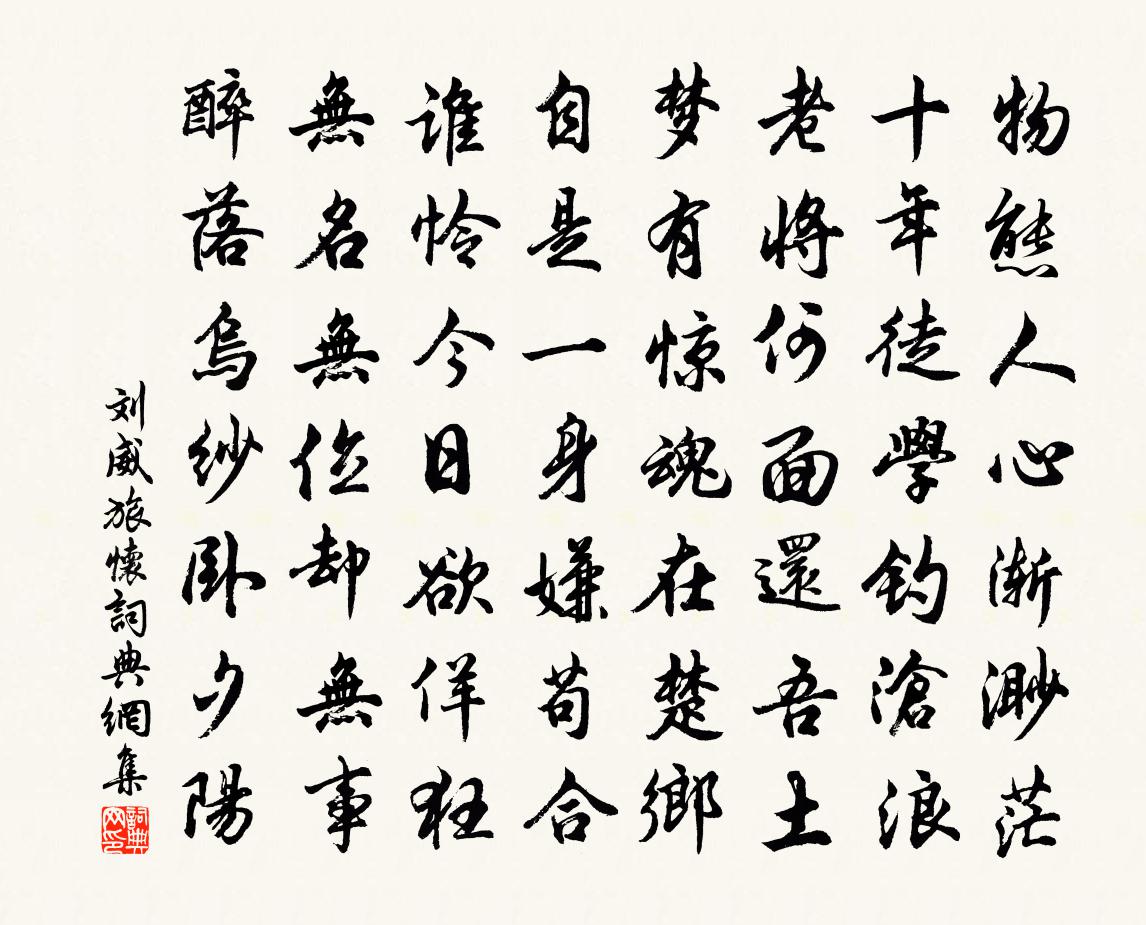 物態人心漸渺茫
十年徒學釣滄浪
老將何面還吾土
梦有惊魂在楚鄉
自是一身嫌苟合
谁怜今日欲佯狂
無名無位却無事
醉落烏紗卧夕陽
刘威旅懷詞典網集
詞典网印